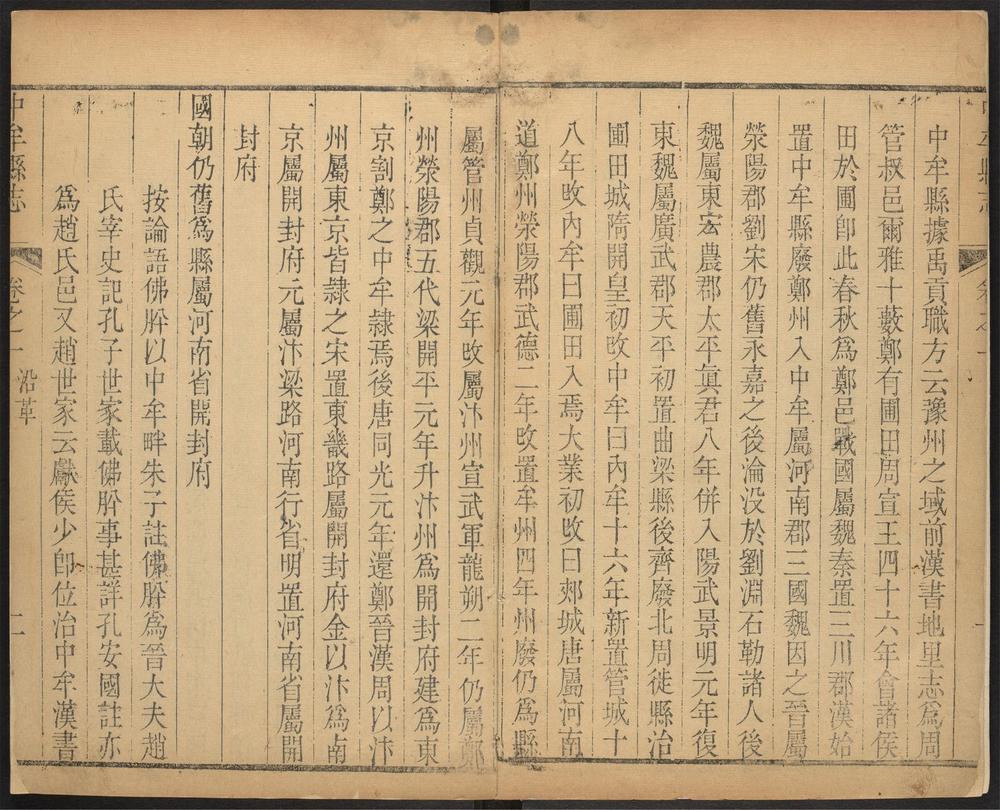 中牟縣據禹貢職方云豫州之域前漢書地里志爲周
管叔邑爾雅十藪鄭有圃田周宣王四十六年會諸侯
田於圃卽此春秋爲鄭邑戰國屬魏秦置三川郡漢始
置中牟縣廢鄭州入中牟屬河南郡三國魏因之晉屬
滎陽郡劉宋仍舊永嘉之後淪没於劉淵石勒諸人後
魏屬東宏農郡太平眞君八年併入陽武景明元年復
東魏屬廣武郡天平初置曲梁縣後齊廢北周徙縣治
圃田城隋開皇初改中牟曰內牟十六年新置管城十
八年改內牟曰圃田入焉大業初改曰郟城唐屬河南
道鄭州滎陽郡武德二年改置牟州四年州廢仍爲縣
屬管州貞觀元年改屬汴州宣武軍龍朔二年仍屬鄭
州滎陽郡五代梁開平元年升汴州爲開封府建爲東
京割鄭之中牟隷焉後唐同光元年還鄭晉漢周以汴
州屬東京皆隷之宋置東畿路屬開封府金以汴爲南
京屬開封府元屬汴梁路河南行省明置河南省屬開
封府
國朝仍舊爲縣屬河南省開封府
按論語佛肸以中牟畔朱子註佛肸爲晉大夫趙
氏宰史記孔子世家載佛肸事甚詳孔安國註亦
爲趙氏邑又趙世家云獻侯少卽位治中牟漢書
中牟縣志
卷之一 沿革
二